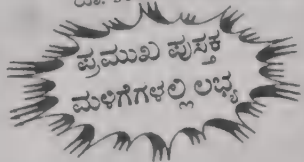 ಪ್ರಮುಖ ಪುಸ್ತಕ
ಮಳಿಗೆಗಳಲ್ಲಿ ಲಭ್ಯ